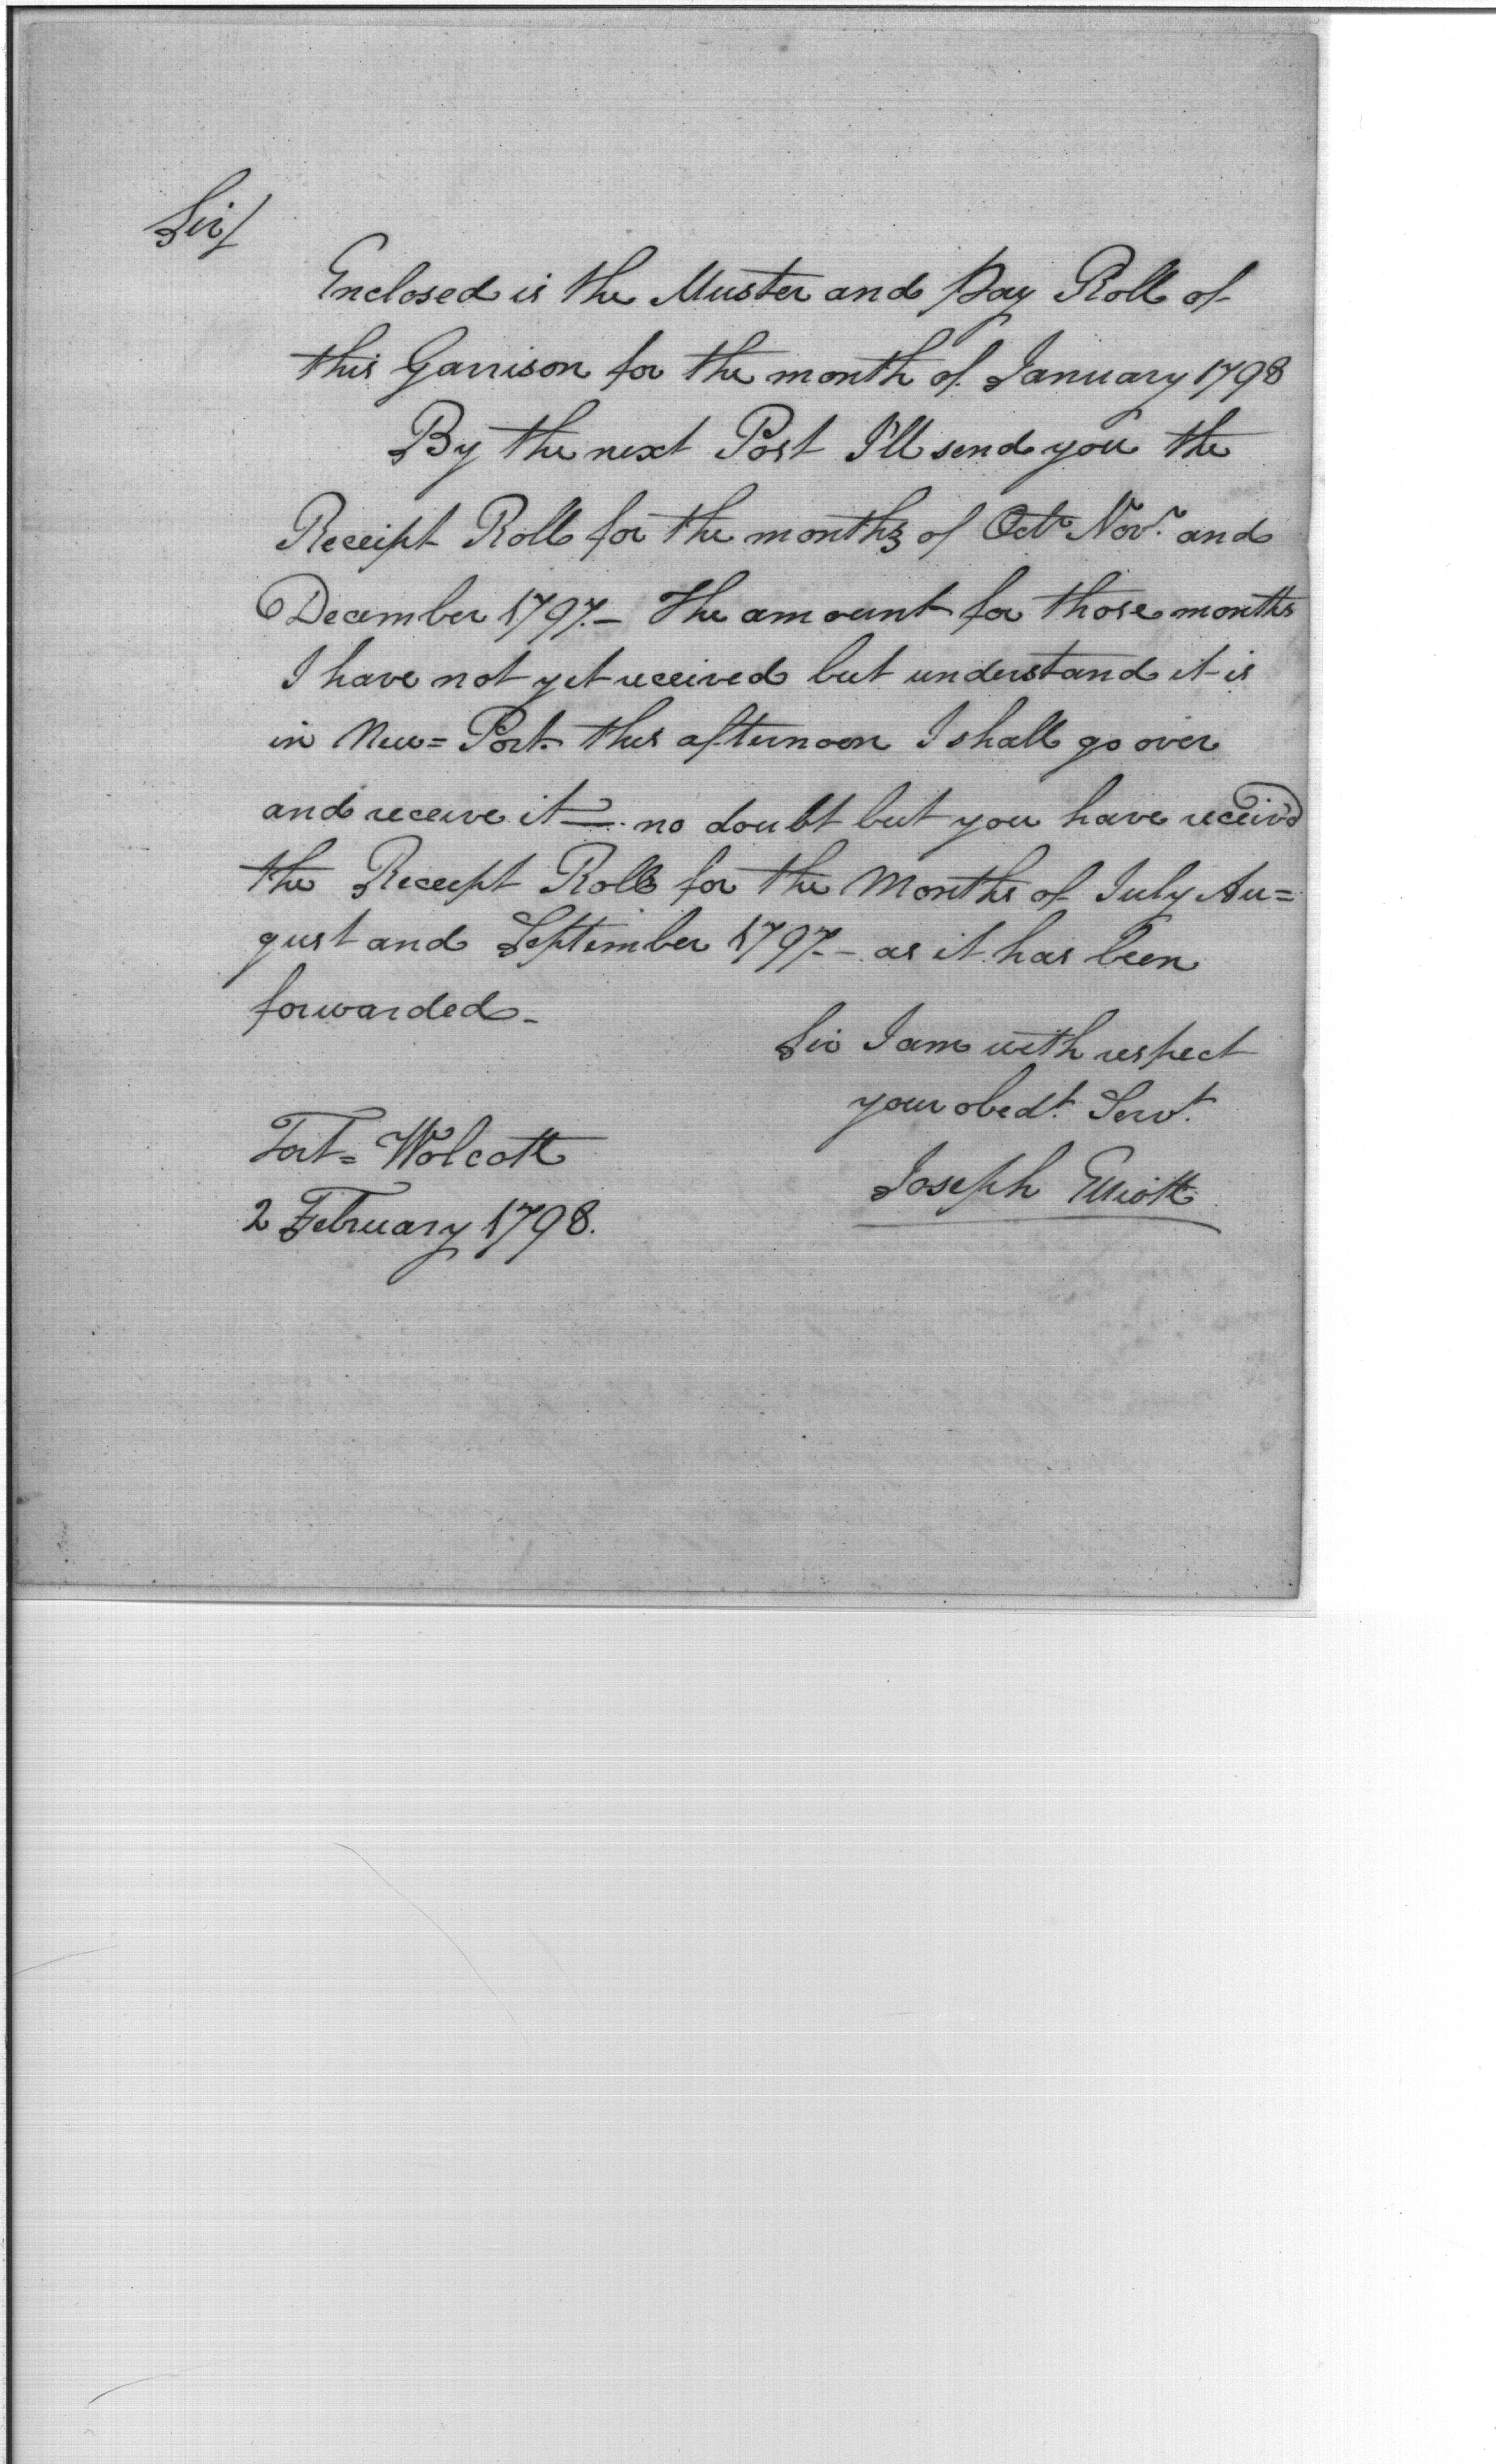 Sir/
Enclosed is the Muster and Pay Roll of
this Garrison for the month of January 1798
By the next Post I'll send you the
Receipt Roll for the months of Octr Novr. and
December 1797.— The amount for those months
I have not yet received but understand it is
in New=Port this afternoon I shall go over
and receive it —. no doubt but you have receiv'd
the Receipt Rolls for the Months of July Au=
gust and September 1797.— as it has been
forwarded—
Sir I am with respect
your obedt. Servt.
Joseph Elliott
Fort=Wolcott
2 February 1798.